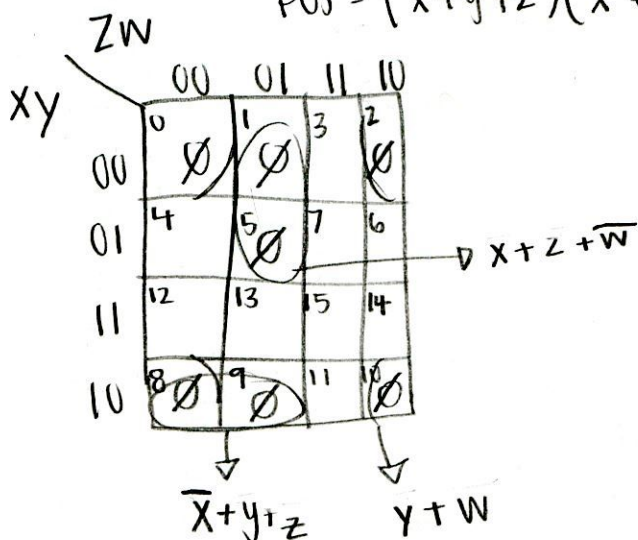 POS = (x+y+z)(x+
ZW
00 01 11 10
XY
00 0 Ø 1 Ø 3 2 Ø
01 4 5 Ø 7 6
x + z + w̅
11 12 13 15 14
10 8 Ø 9 Ø 11 10 Ø
x̅+y+z y + w